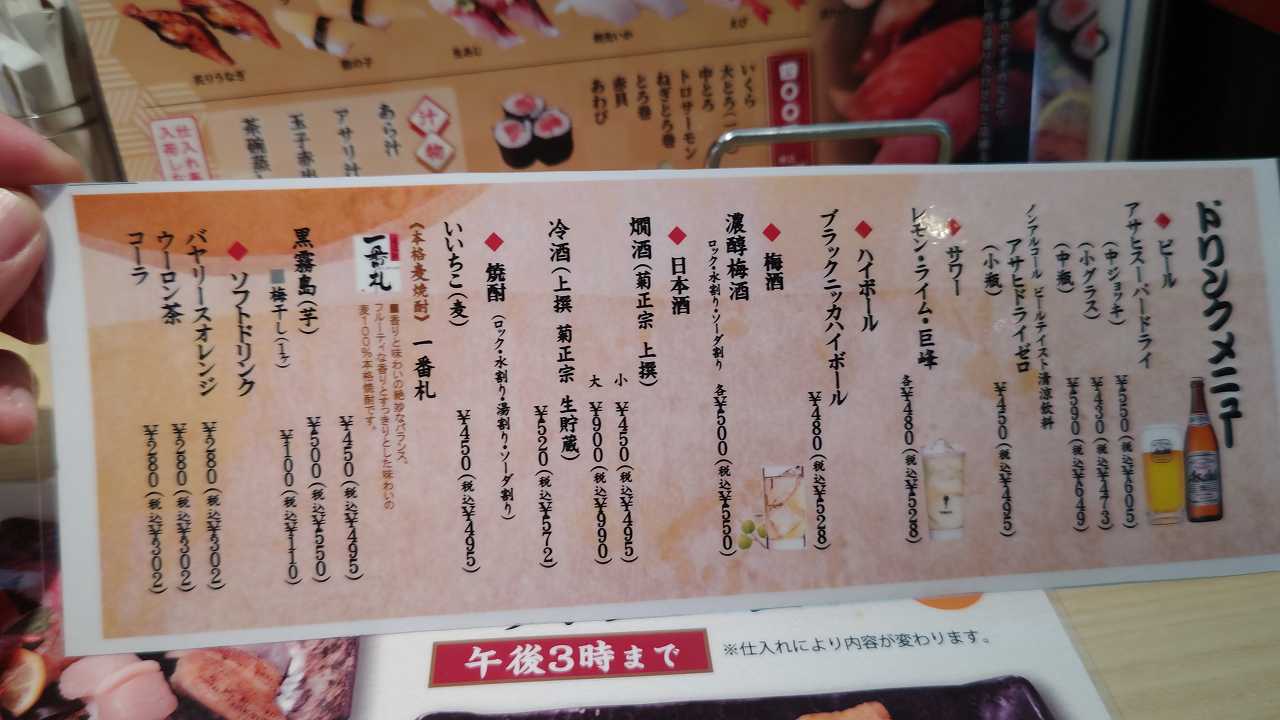 炙りうなぎ
数の子
生あじ
えび
四〇〇
いくら
大とろ(一
中とろ
トロサーモン
ねぎとろ巻
とろ巻
赤貝
あわび
汁物
あら汁
アサリ汁
玉子赤出
茶碗蒸
ドリンクメニュー
◆ビール
アサヒスーパードライ
(中ジョッキ) ¥550(税込¥605)
(小グラス) ¥430(税込¥473)
(中瓶) ¥590(税込¥649)
ノンアルコール ビールテイスト清涼飲料
アサヒドライゼロ
(小瓶) ¥450(税込¥495)
◆サワー
レモン・ライム・巨峰 各¥480(税込¥528)
◆ハイボール
ブラックニッカハイボール ¥480(税込¥528)
◆梅酒
濃醇梅酒
ロック・水割り・ソーダ割り 各¥500(税込¥550)
◆日本酒
燗酒(菊正宗 上撰) 小 ¥450(税込¥495)
大 ¥900(税込¥990)
冷酒(上撰 菊正宗 生貯蔵) ¥520(税込¥572)
◆焼酎(ロック・水割り・湯割り・ソーダ割り)
いいちこ(麦) ¥450(税込¥495)
《本格麦焼酎》 一番札
一番札
■香りと味わいの絶妙なバランス。
フルーティな香りとすっきりとした味わいの
麦100%本格焼酎です。
¥450(税込¥495)
黒霧島(芋) ¥500(税込¥550)
■梅干し(1ヶ) ¥100(税込¥110)
◆ソフトドリンク
バヤリースオレンジ ¥280(税込¥302)
ウーロン茶 ¥280(税込¥302)
コーラ ¥280(税込¥302)
午後3時まで
※仕入れにより内容が変わります。